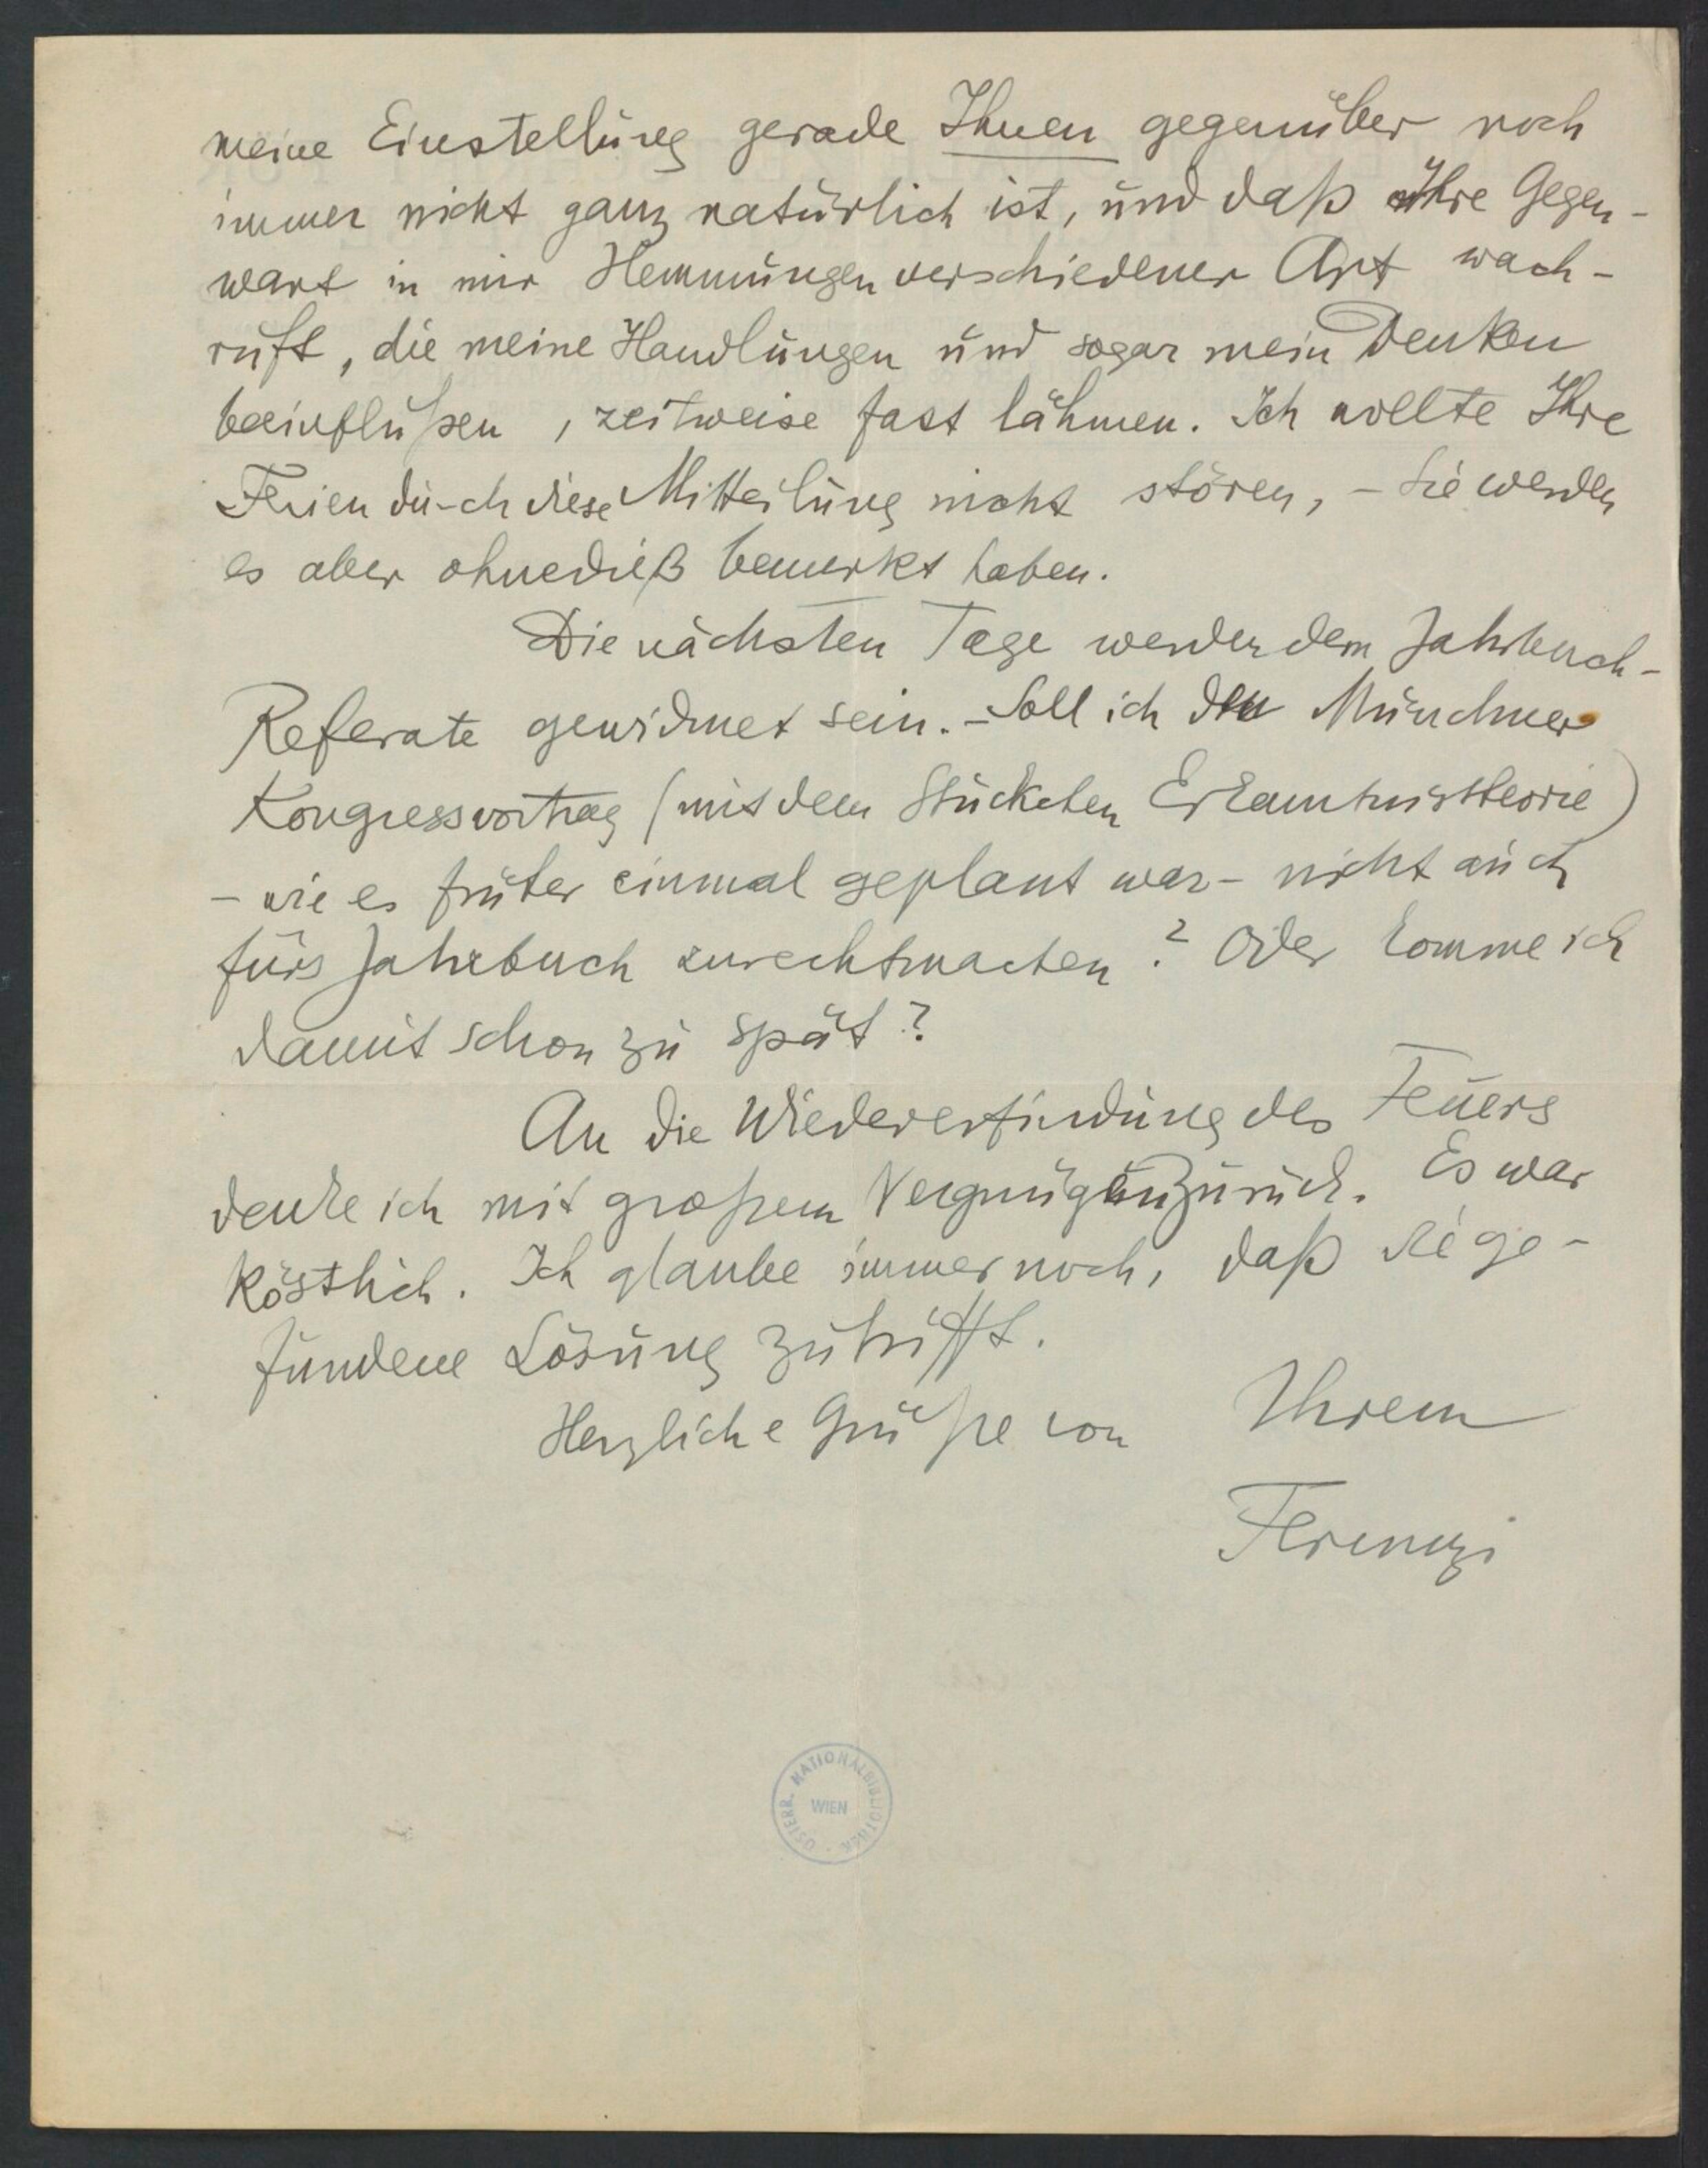 meine Einstellung gerade Ihnen gegenüber noch
immer nicht ganz natürlich ist, und daß Ihre Gegen-
wart in mir Hemmungen verschiedener Art wach-
ruft, die meine Handlungen und sogar mein Denken
beeinflußen, zeitweise fast lähmen. Ich wollte Ihre
Ferien durch diese Mitteilung nicht stören, - Sie werden
es aber ohnedieß bemerkt haben.
Die nächsten Tage werden dem Jahrbuch-
Referate gewidmet sein. - Soll ich den Münchner
Kongressvortrag (mit dem Stückchen Erkenntnistheorie)
- wie es früher einmal geplant war - nicht auch
fürs Jahrbuch zurechtmachen? Oder komme ich
damit schon zu spät?
An die Wiedererfindung des Feuers
denke ich mit großem Vergnügen zurück. Es war
köstlich. Ich glaube immer noch, daß die ge-
fundene Lösung zutrifft.
Herzliche Grüße von Ihrem
Ferenczi
ÖSTERR. NATIONALBIBLIOTHEK
WIEN